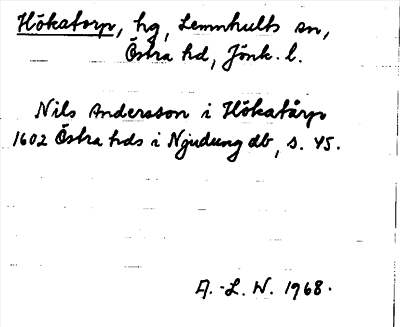 Hökatorp, hg, Lemnhults sn,
Östra hd, Jönk. l.
Nils Andersson i Hökatårp
1602 Östra hds i Njudung db, s. 45.
A.-L. W. 1968.